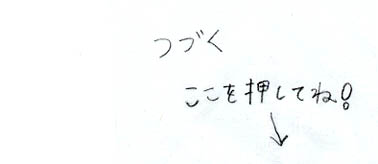 つづく
ここを押してね!
↓